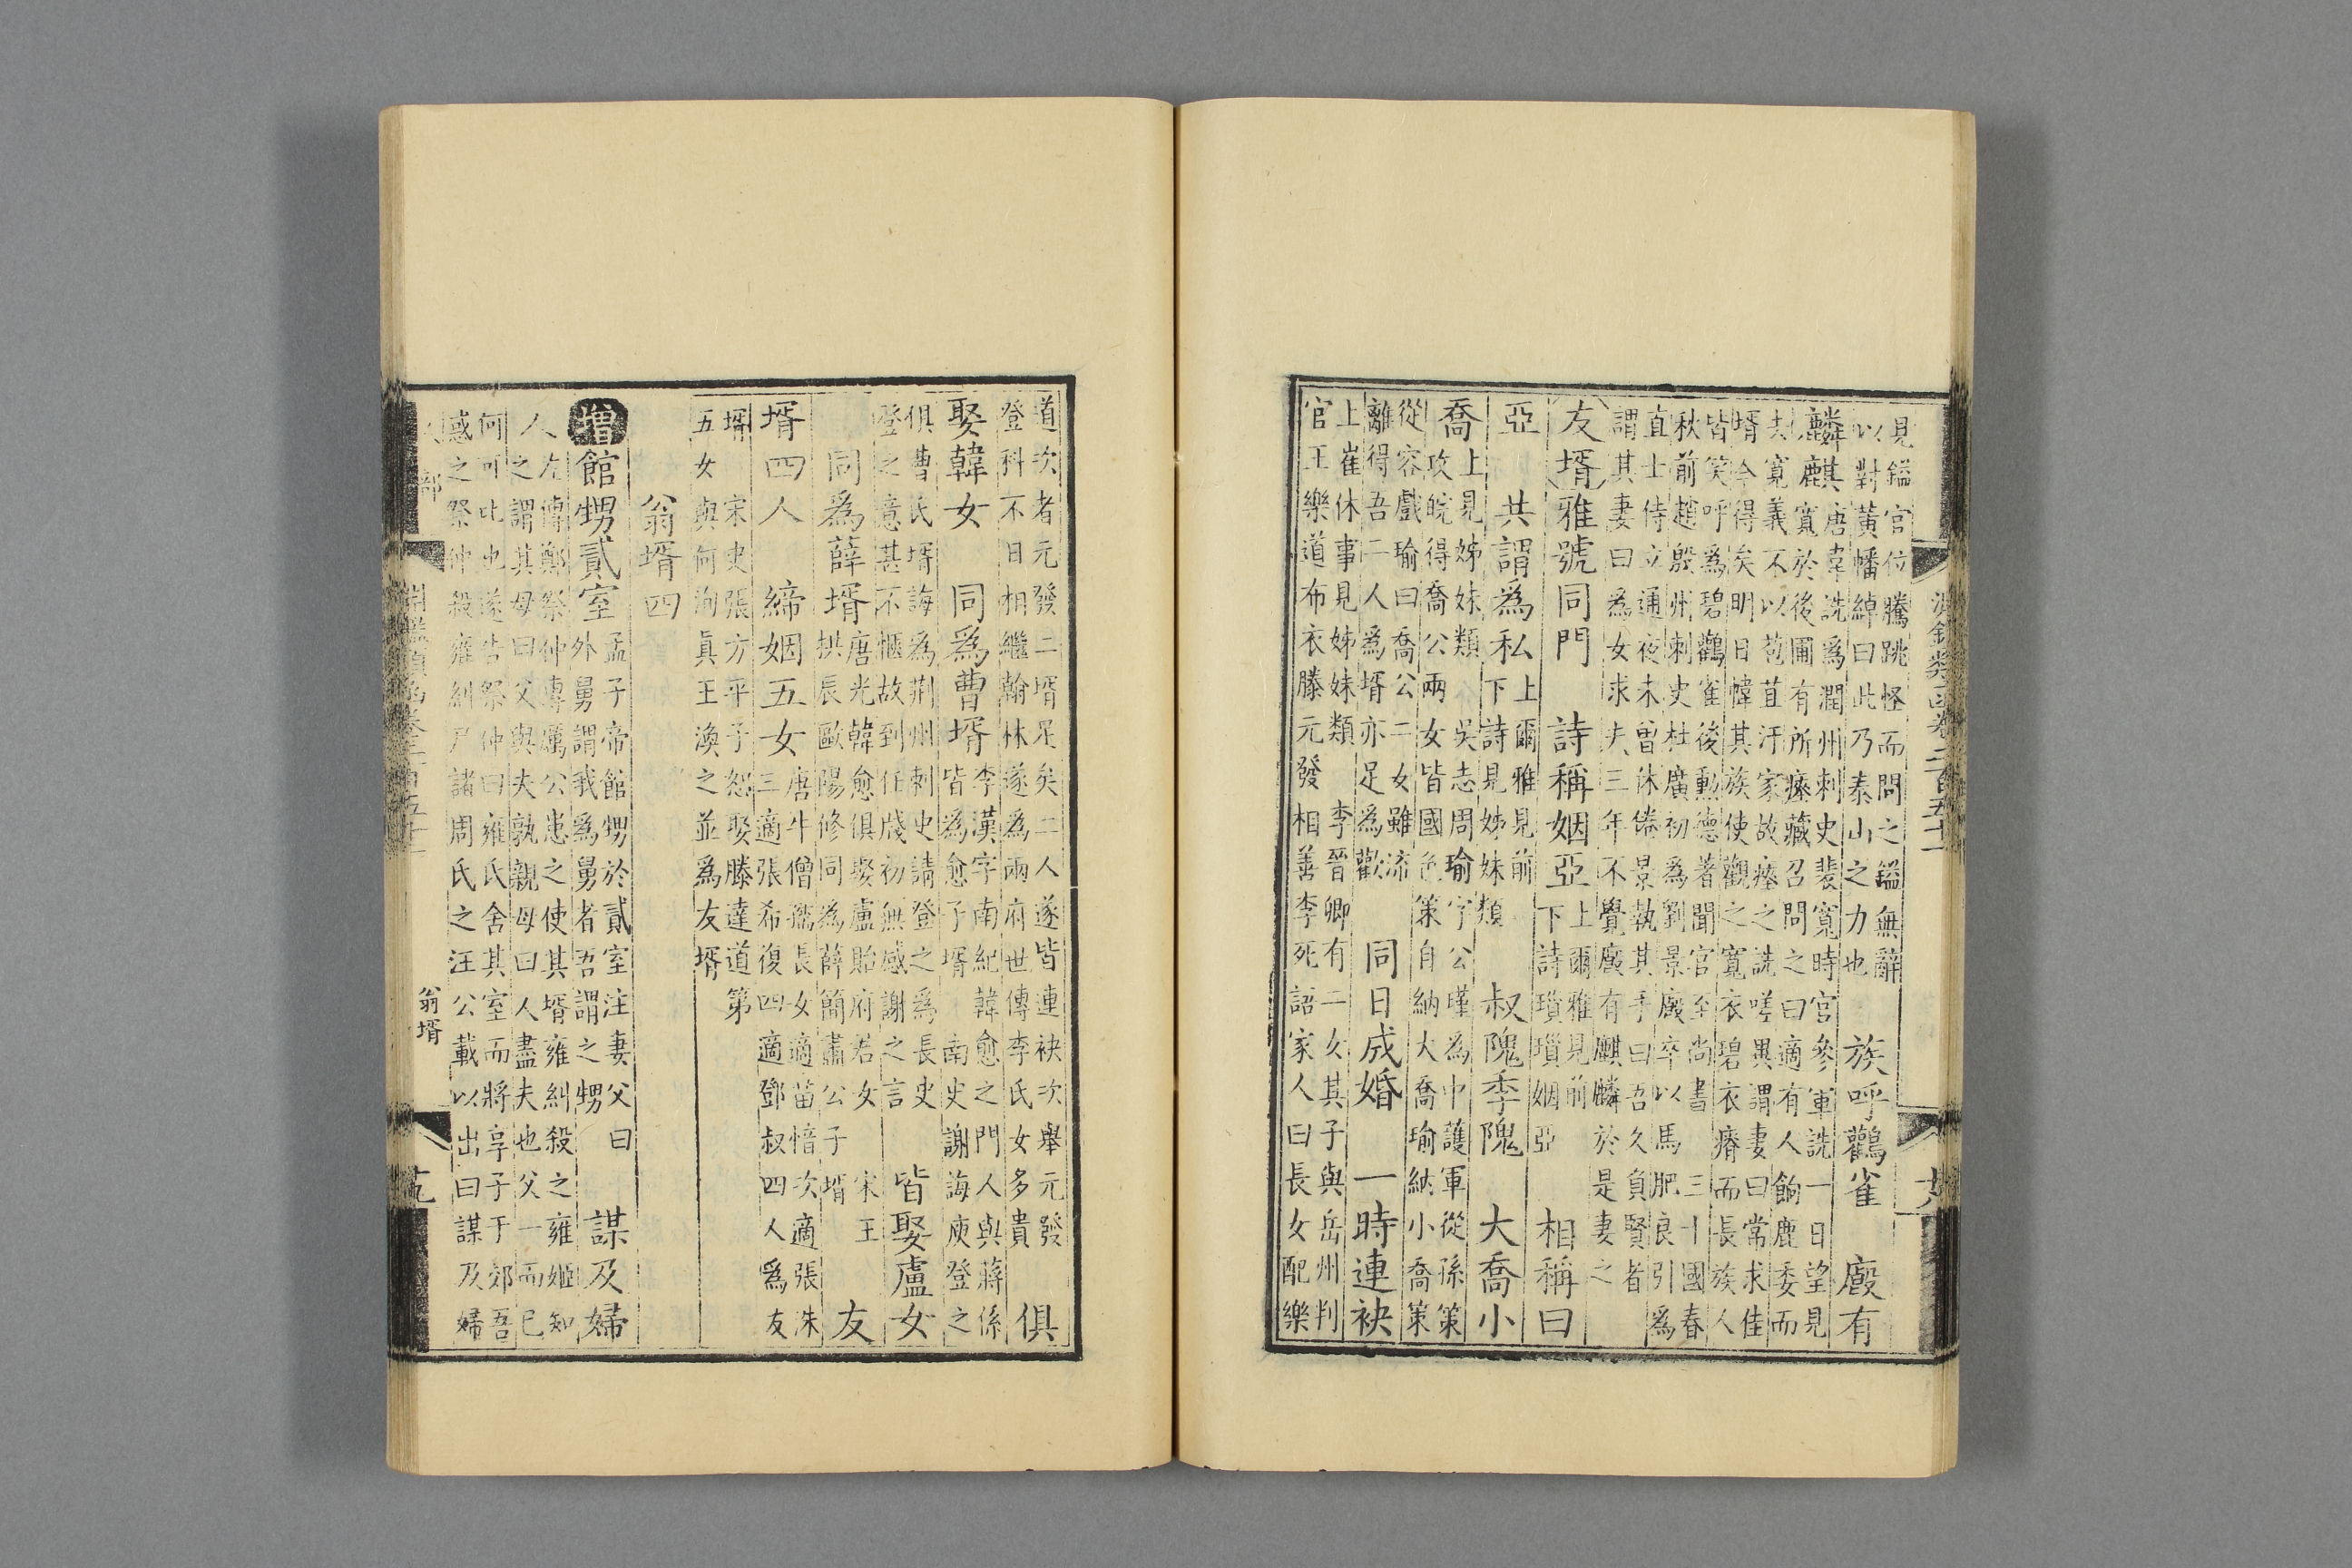 見鎰官位騰跳怪而問之鎰無辭
以對黃幡綽曰此乃泰山之力也
族呼鸛雀 廄有
麟麒
唐韋詵為潤州刺史裴寬時官參軍詵一日望見
寬於後圃有所瘞藏召問之曰適有人餉鹿委而
去寬義不以苞苴汙家故瘞之詵嗟異謂妻曰常求佳
壻今得矣明日幃其族使觀之寬衣碧衣瘠而長族人
皆笑呼為碧鸛雀後勳德著聞官至尚書 三十國春
秋前趙殷州刺史杜廣初為劉景廄卒以馬肥良引為
直士侍立通夜未曾休倦景執其手曰吾久負賢者
謂其妻曰為女求夫三年不覺廄有麒麟於是妻之
友壻雅號同門 詩稱姻亞
上爾雅見前
下詩瑣瑣姻亞
相稱曰
亞 共謂為私
上爾雅見前
下詩見姊妹類
叔隗季隗 大喬小
喬
上見姊妹類 吳志周瑜字公瑾為中護軍從孫策
攻皖得喬公兩女皆國色策自納大喬瑜納小喬策
從容戲瑜曰喬公二女雖流
離得吾二人為壻亦足為歡
同日成婚 一時連袂
上崔休事見姊妹類 李晉卿有二女其子與岳州判
官王樂道布衣滕元發相善李死詔家人曰長女配樂
道次者元發二壻足矣二人遂皆連袂次舉元發
登科不日相繼翰林遂為兩府世傳李氏女多貴
俱
娶韓女 同為曹壻
李漢字南紀韓愈之門人與蔣係
皆為愈子壻 南史謝誨庾登之
俱曹氏壻誨為荊州刺史請登之為長史
登之意甚不愜故到任牋初無感謝之言
皆娶盧女
同為薛壻
唐光韓愈俱娶盧貽府若女 宋王
拱辰歐陽修同為薛簡肅公子壻
友
壻四人 締姻五女
唐牛僧孺長女適苗愔次適張洙
三適張希復四適鄧叔四人為友
壻 宋史張方平子恕娶滕達道第
五女與何洵真王渙之並為友壻
翁壻四
增館甥貳室
孟子帝館甥於貳室注妻父曰
外舅謂我為舅者吾謂之甥
謀及婦
人
左傳鄭祭仲專厲公患之使其壻雍糾殺之雍姬知
之謂其母曰父與夫孰親母曰人盡夫也父一而已
何可比也遂告祭仲曰雍氏舍其室而將享子于郊吾
惑之祭仲殺雍糾尸諸周氏之汪公載以出曰謀及婦
翁壻